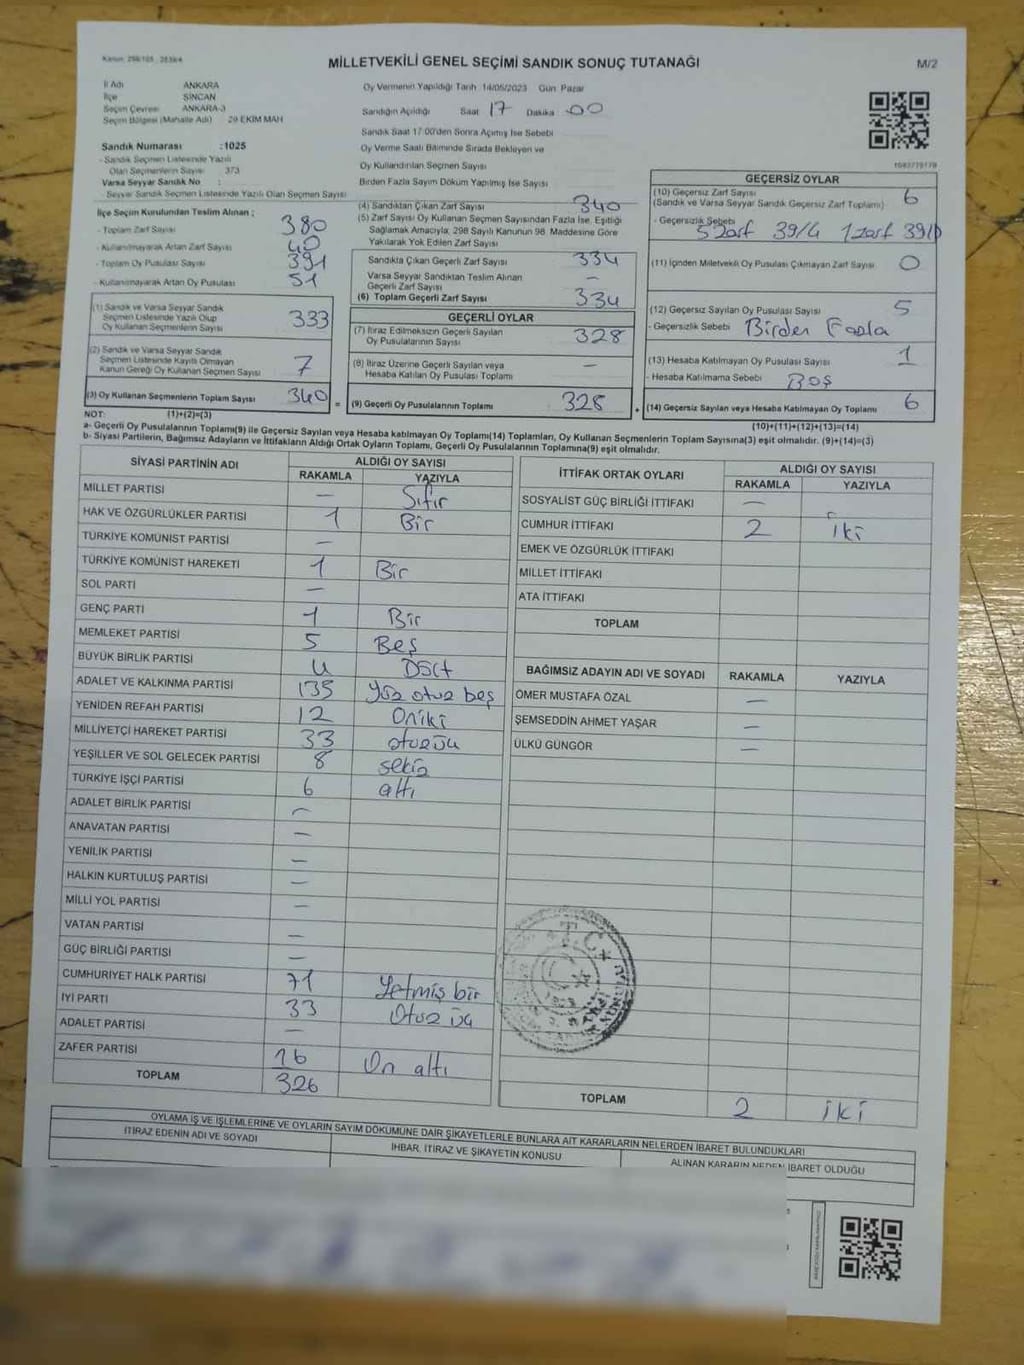 Kanun: 298/105 , 2839/4
MİLLETVEKİLİ GENEL SEÇİMİ SANDIK SONUÇ TUTANAĞI
M/2
İl Adı ANKARA
İlçe SİNCAN
Seçim Çevresi ANKARA-3
Seçim Bölgesi (Mahalle Adı) 29 EKİM MAH
Sandık Numarası :1025
- Sandık Seçmen Listesinde Yazılı
Olan Seçmenlerin Sayısı 373
Varsa Seyyar Sandık No :
- Seyyar Sandık Seçmen Listesinde Yazılı Olan Seçmen Sayısı
Oy Vermenin Yapıldığı Tarih 14/05/2023 Gün Pazar
Sandığın Açıldığı Saat 17 Dakika 00
Sandık Saat 17:00'den Sonra Açılmış İse Sebebi
Oy Verme Saati Bitiminde Sırada Bekleyen ve
Oy Kullandırılan Seçmen Sayısı
Birden Fazla Sayım Döküm Yapılmış İse Sayısı
İlçe Seçim Kurulundan Teslim Alınan ;
- Toplam Zarf Sayısı 380
- Kullanılmayarak Artan Zarf Sayısı 40
- Toplam Oy Pusulası Sayısı 391
- Kullanılmayarak Artan Oy Pusulası 51
(1) Sandık ve Varsa Seyyar Sandık
Seçmen Listesinde Yazılı Olup
Oy Kullanan Seçmenlerin Sayısı 333
(2) Sandık ve Varsa Seyyar Sandık
Seçmen Listesinde Kayıtlı Olmayan
Kanun Gereği Oy Kullanan Seçmen Sayısı 7
(3) Oy Kullanan Seçmenlerin Toplam Sayısı 340
NOT: (1)+(2)=(3)
(4) Sandıktan Çıkan Zarf Sayısı 340
(5) Zarf Sayısı Oy Kullanan Seçmen Sayısından Fazla İse, Eşitliği
Sağlamak Amacıyla, 298 Sayılı Kanunun 98. Maddesine Göre
Yakılarak Yok Edilen Zarf Sayısı
Sandıkta Çıkan Geçerli Zarf Sayısı 334
Varsa Seyyar Sandıktan Teslim Alınan
Geçerli Zarf Sayısı —
(6) Toplam Geçerli Zarf Sayısı 334
GEÇERLİ OYLAR
(7) İtiraz Edilmeksizin Geçerli Sayılan
Oy Pusulalarının Sayısı 328
(8) İtiraz Üzerine Geçerli Sayılan veya
Hesaba Katılan Oy Pusulası Toplamı —
= (9) Geçerli Oy Pusulalarının Toplamı 328
GEÇERSİZ OYLAR
(10) Geçersiz Zarf Sayısı 6
(Sandık ve Varsa Seyyar Sandık Geçersiz Zarf Toplamı)
- Geçersizlik Sebebi
5 zarf 39/4 1 zarf
(11) İçinden Milletvekili Oy Pusulası Çıkmayan Zarf Sayısı 0
(12) Geçersiz Sayılan Oy Pusulası Sayısı 5
- Geçersizlik Sebebi Birden Fazla
(13) Hesaba Katılmayan Oy Pusulası Sayısı 1
- Hesaba Katılmama Sebebi Boş
+ (14) Geçersiz Sayılan veya Hesaba Katılmayan Oy Toplamı 6
(10)+(11)+(12)+(13)=(14)
a- Geçerli Oy Pusulalarının Toplamı(9) ile Geçersiz Sayılan veya Hesaba katılmayan Oy Toplamı(14) Toplamları, Oy Kullanan Seçmenlerin Toplam Sayısına(3) eşit olmalıdır. (9)+(14)=(3)
b- Siyasi Partilerin, Bağımsız Adayların ve İttifakların Aldığı Ortak Oyların Toplamı, Geçerli Oy Pusulalarının Toplamına(9) eşit olmalıdır.
SİYASİ PARTİNİN ADI ALDIĞI OY SAYISI
RAKAMLA YAZIYLA
MİLLET PARTİSİ — Sıfır
HAK VE ÖZGÜRLÜKLER PARTİSİ 1 Bir
TÜRKİYE KOMÜNİST PARTİSİ —
TÜRKİYE KOMÜNİST HAREKETİ 1 Bir
SOL PARTİ —
GENÇ PARTİ 1 Bir
MEMLEKET PARTİSİ 5 Beş
BÜYÜK BİRLİK PARTİSİ 4 Dört
ADALET VE KALKINMA PARTİSİ 135 Yüz otuz beş
YENİDEN REFAH PARTİSİ 12 Oniki
MİLLİYETÇİ HAREKET PARTİSİ 33 otuzüç
YEŞİLLER VE SOL GELECEK PARTİSİ 8 sekiz
TÜRKİYE İŞÇİ PARTİSİ 6 altı
ADALET BİRLİK PARTİSİ —
ANAVATAN PARTİSİ —
YENİLİK PARTİSİ —
HALKIN KURTULUŞ PARTİSİ —
MİLLİ YOL PARTİSİ —
VATAN PARTİSİ —
GÜÇ BİRLİĞİ PARTİSİ —
CUMHURİYET HALK PARTİSİ 71 Yetmiş bir
İYİ PARTİ 33 Otuz üç
ADALET PARTİSİ —
ZAFER PARTİSİ 16 On altı
TOPLAM 326
İTTİFAK ORTAK OYLARI ALDIĞI OY SAYISI
RAKAMLA YAZIYLA
SOSYALİST GÜÇ BİRLİĞİ İTTİFAKI —
CUMHUR İTTİFAKI 2 iki
EMEK VE ÖZGÜRLÜK İTTİFAKI
MİLLET İTTİFAKI
ATA İTTİFAKI
TOPLAM
BAĞIMSIZ ADAYIN ADI VE SOYADI RAKAMLA YAZIYLA
ÖMER MUSTAFA ÖZAL —
ŞEMSEDDİN AHMET YAŞAR —
ÜLKÜ GÜNGÖR —
T.C.
TOPLAM 2 iki
OYLAMA İŞ VE İŞLEMLERİNE VE OYLARIN SAYIM DÖKÜMÜNE DAİR ŞİKAYETLERLE BUNLARA AİT KARARLARIN NELERDEN İBARET BULUNDUKLARI
İTİRAZ EDENİN ADI VE SOYADI İHBAR, İTİRAZ VE ŞİKAYETİN KONUSU ALINAN KARARIN NEDEN İBARET OLDUĞU